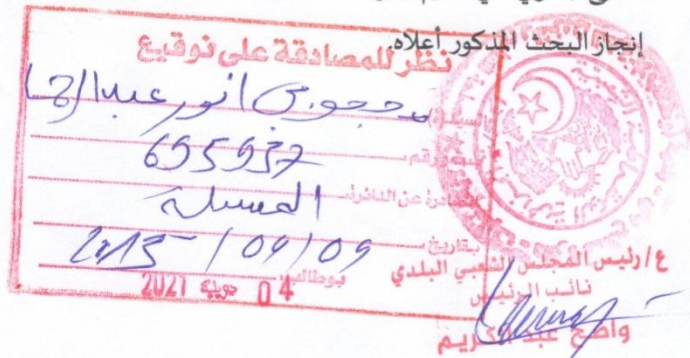 إنجاز البحث المذكور أعلاه.
نظر للمصادقة على توقيع
السيد
محجوبي انور عبد
رقم
695937
الصادرة عن الدائرة
المسيلة
بتاريخ
2015 / 04 / 09
04 جويلية 2021
ع/ رئيس المجلس الشعبي البلدي
نائب الرئيس
واضح عبد الكريم